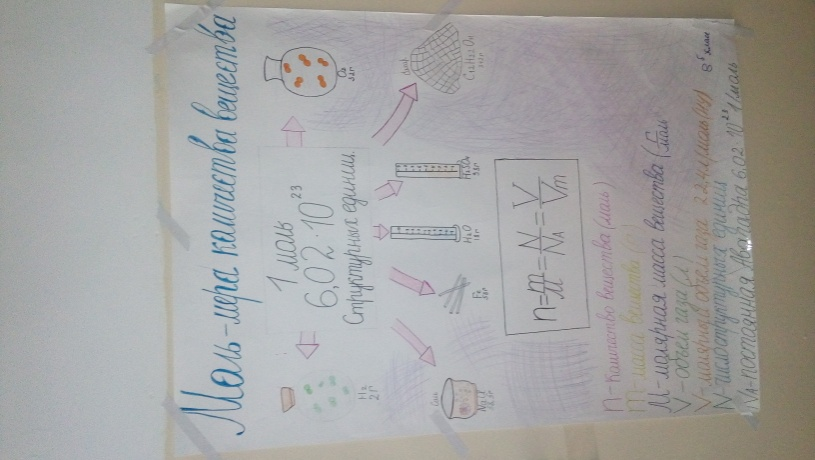 Моль-мера количества вещества
1 моль
6,02·10²³
Структурных единиц
H₂
2г
O₂
32г
Соль
NaCl
Fe
H₂O
18г
H₂SO₄
C₁₂H₂₂O₁₁
n = m/M = N/NA = V/Vm
n-количество вещества (моль)
m-масса вещества (г)
M-молярная масса вещества (г/моль
V-объём газа (л)
V-молярный объём газа 22,4л/моль (ну)
N-число структурных единиц
NA-постоянная Авогадра 6,02 10²³ 1/моль
8 класс